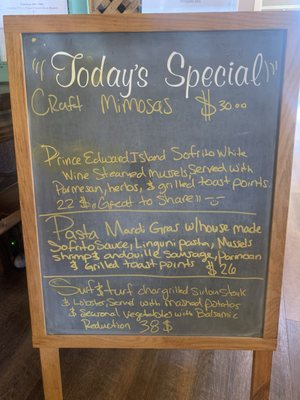 "Today's Special"
Craft Mimosas $30.00
Prince Edward Island Sofrito White
Wine Steamed mussels Served with
Parmesan, herbs, & grilled toast points.
22 $ (Great to Share!!
Pasta Mardi Gras w/house made
Sofrito Sauce, Linguni pasta, Mussels
shrimp & andouille sausage, Parmesan
& Grilled toast points $26
Surf & turf chargrilled sirloin steak
& Lobster, Served with mashed potatos
& Seasonal vegetables with Balsamic
Reduction 38$